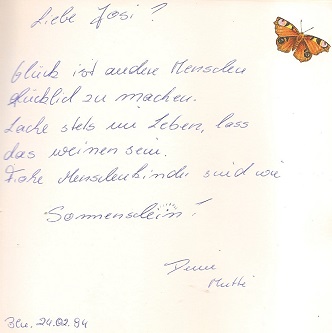 Liebe Josi?
Glück ist andere Menschen
Glücklich zu machen.
Lache stets im Leben, lass
das weinen sein.
Frohe Menschenkinder sind wie
Sonnenschein!
Deine
Mutti
Bln, 24.02.94